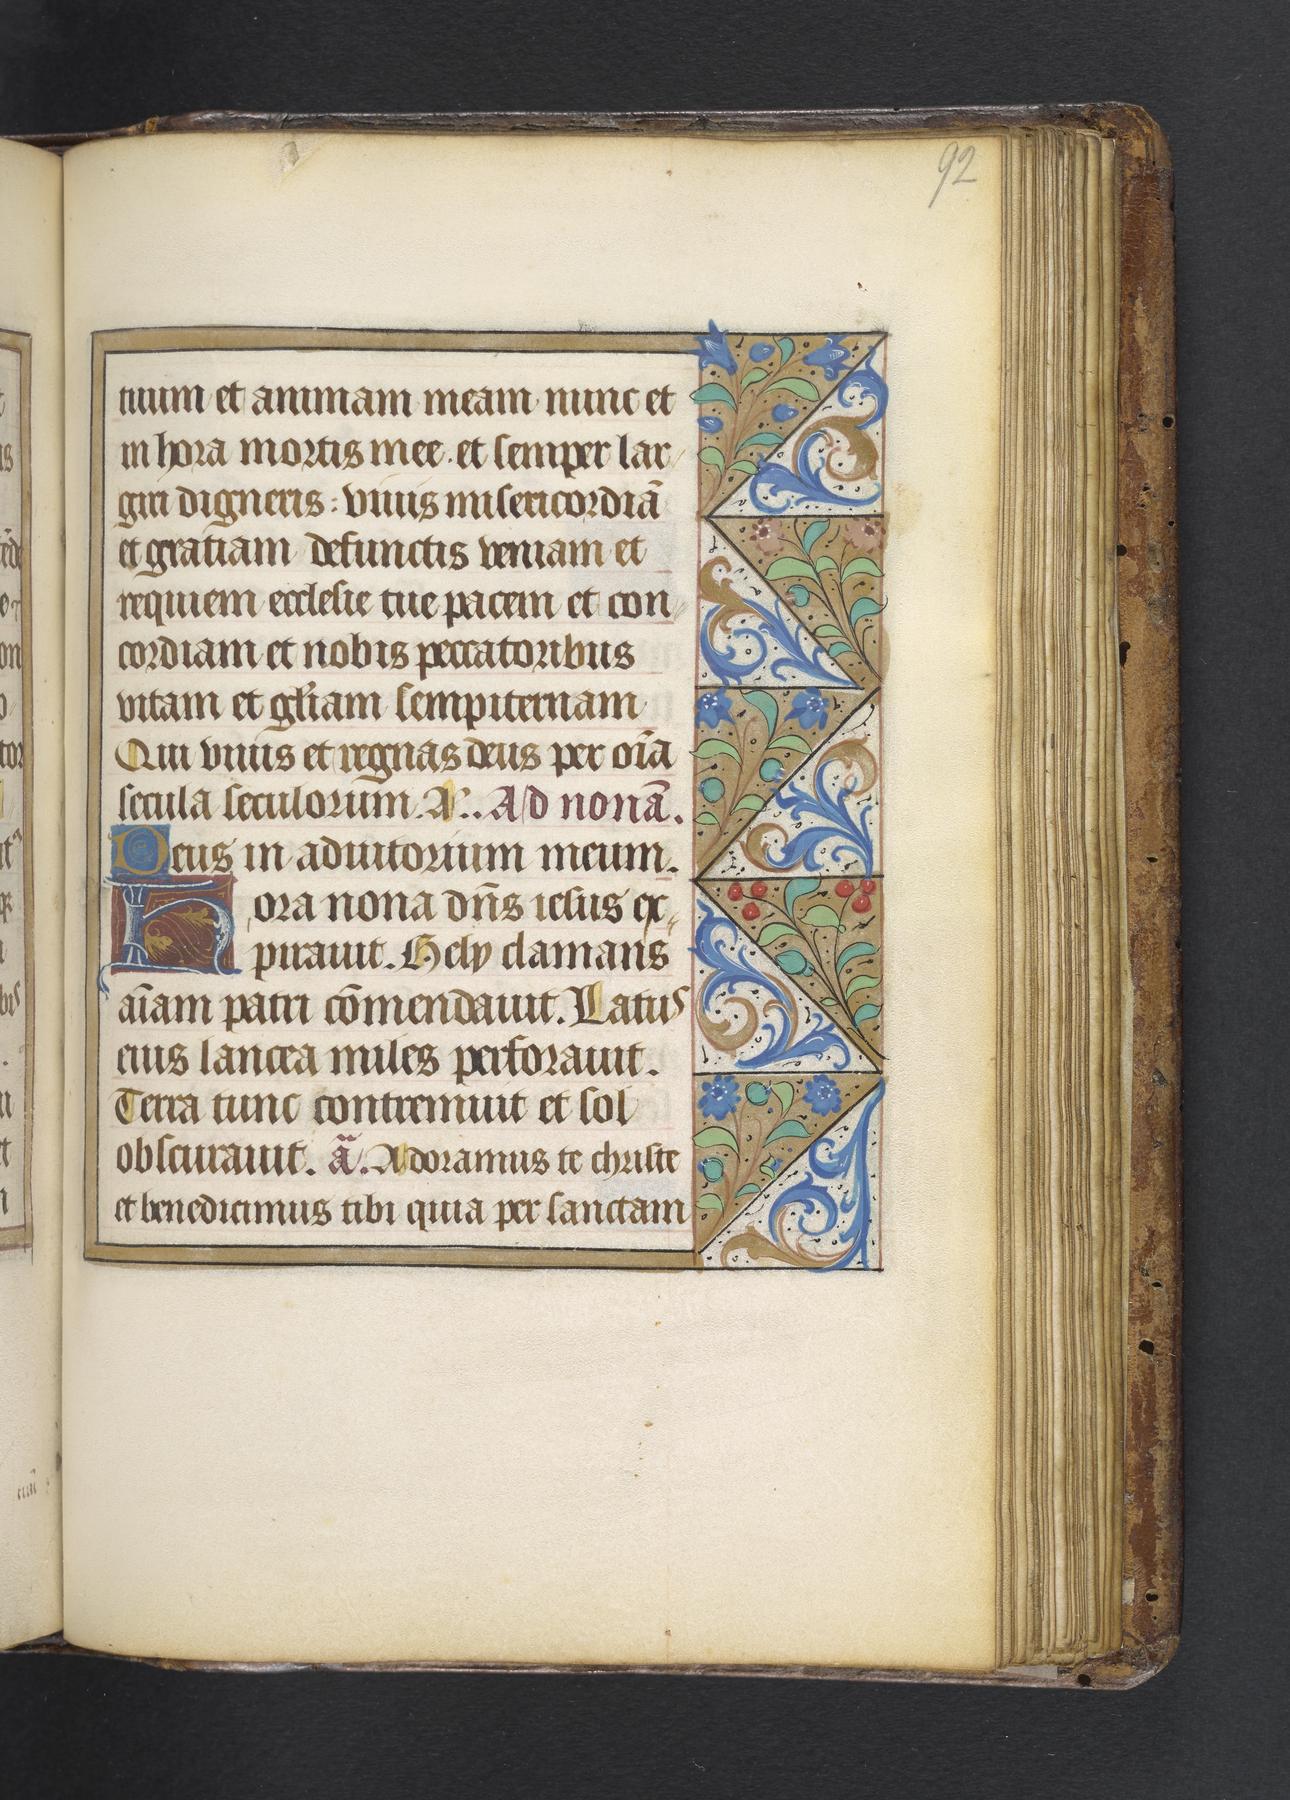 92
tuum et animam meam nunc et
in hora mortis mee. et semper lar
giri digneris: viuis misericordiā
et gratiam defunctis veniam et
requiem ecclesie tue pacem et con
cordiam et nobis peccatoribus
vitam et gl̄iam sempiternam
Qui viuis et regnas deus per oīa
secula seculorum. A.. Ad nonā.
Deus in adiutorium meum.
Hora nona dn̄s iesus ex
pirauit. Hely clamans
aīam patri cōmendauit. Latus
eius lancea miles perforauit.
Terra tunc contremuit et sol
obscurauit. ā. Adoramus te christe
et benedicimus tibi quia per sanctam